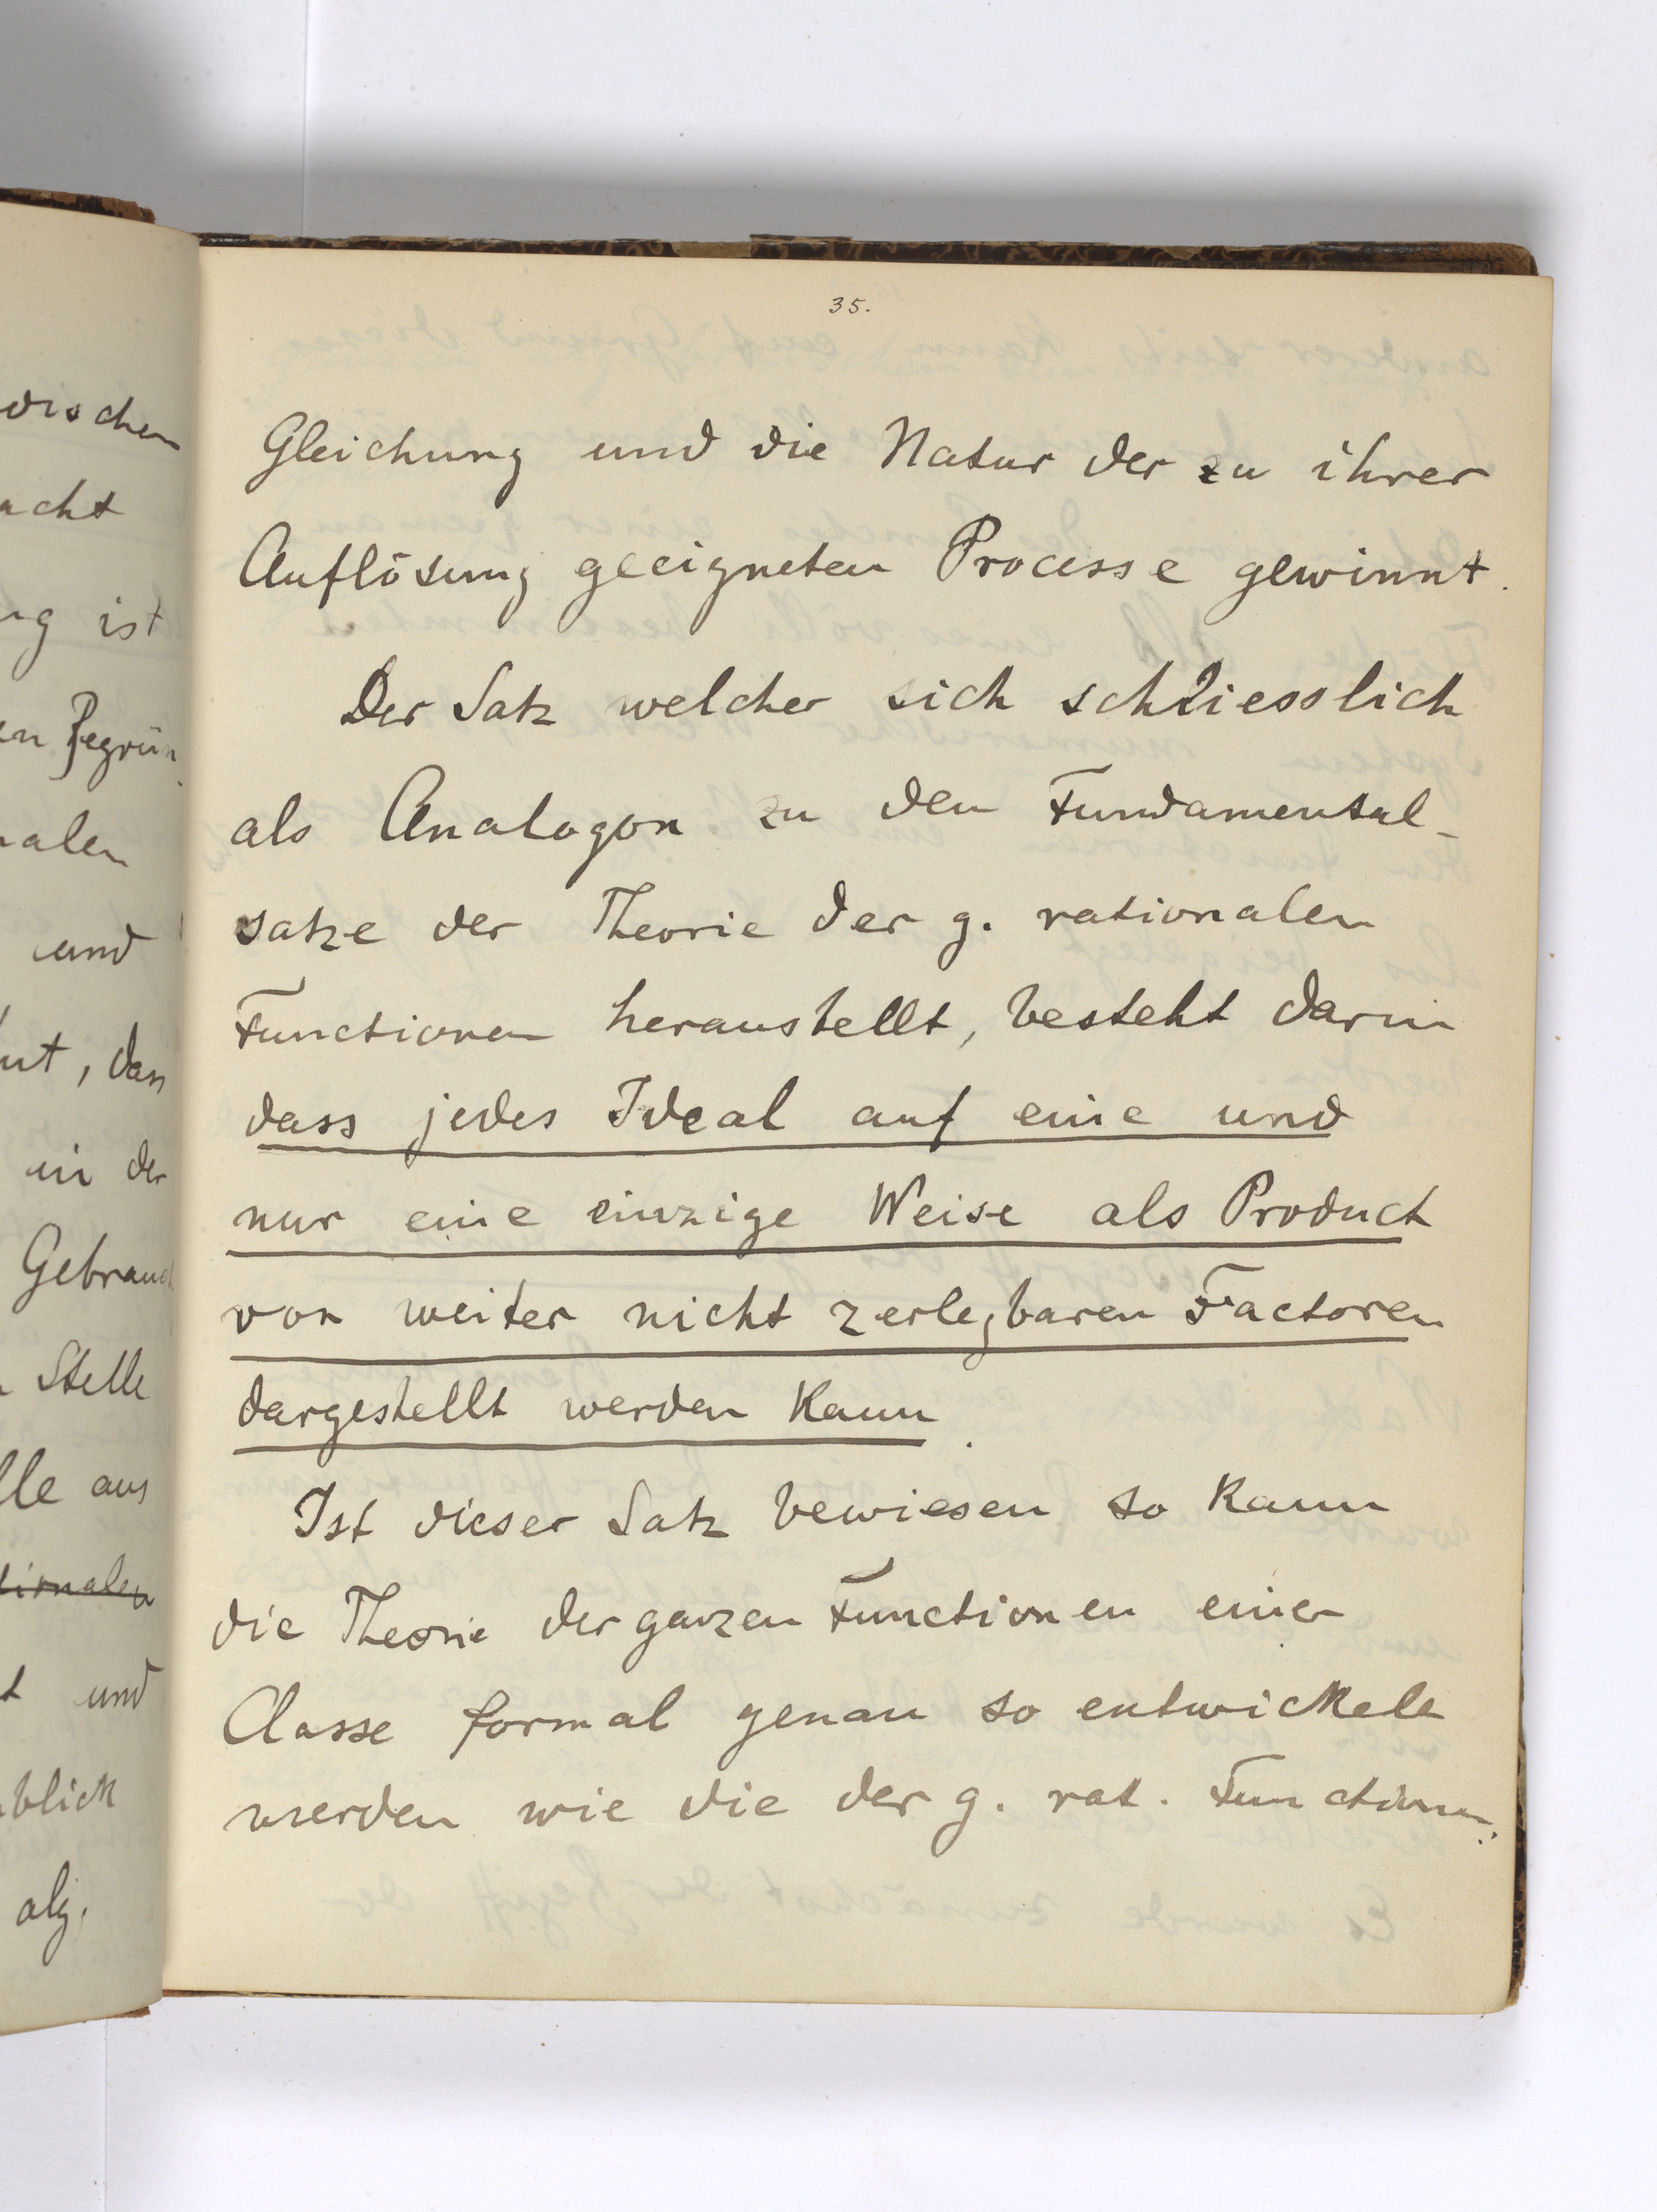 vischen
acht
ng ist
en Begrün
nalen
und
, dass
in der
Gebrauch
Stelle
lle aus
tionalen
und
blick
alg.
35.
Gleichung und die Natur der zu ihrer
Auflösung geeigneten Processe gewinnt.
Der Satz welcher sich schliesslich
als Analogon zu den Fundamental-
satze der Theorie der g. rationalen
Functionen heraustellt, besteht darin
dass jedes Ideal auf eine und
nur eine einzige Weise als Product
von weiter nicht zerlegbaren Factoren
dargestellt werden kann.
Ist dieser Satz bewiesen so kann
die Theorie der ganzen Functionen einer
Classe formal genau so entwickelt
werden wie die der g. rat. Functionen.